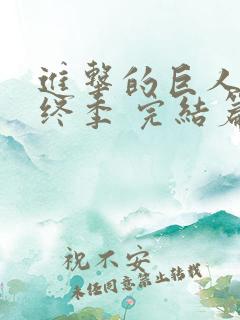 進撃的巨人
终季 完結篇
祝不安
未经同意禁止转载